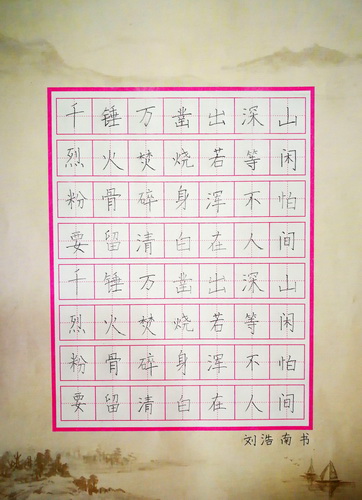 千锤万凿出深山
烈火焚烧若等闲
粉骨碎身浑不怕
要留清白在人间
千锤万凿出深山
烈火焚烧若等闲
粉骨碎身浑不怕
要留清白在人间
刘浩南书